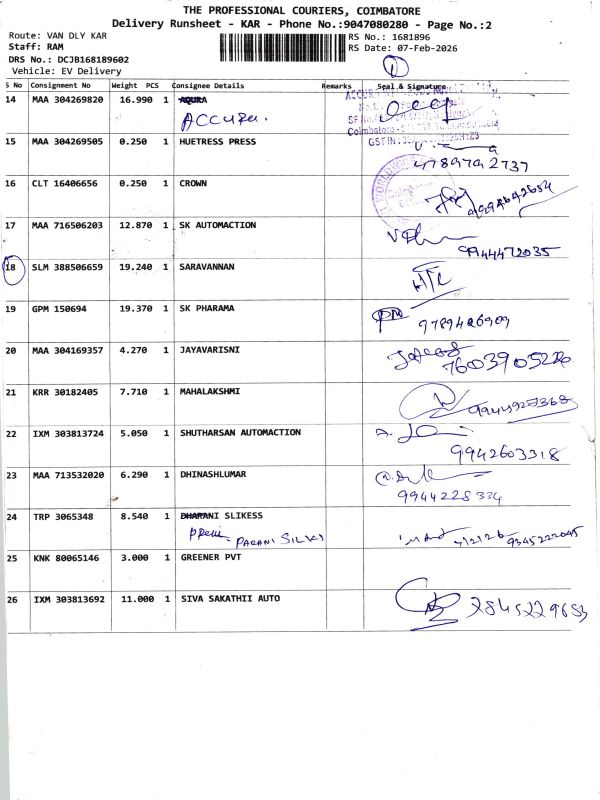 THE PROFESSIONAL COURIERS, COIMBATORE
Delivery Runsheet - KAR - Phone No.:9047080280 - Page No.:2
Route: VAN DLY KAR
RS No.: 1681896
Staff: RAM
RS Date: 07-Feb-2026
DRS No.: DCJB168189602
Vehicle: EV Delivery
1
S No Consignment No Weight PCS Consignee Details Remarks Seal & Signature
14 MAA 304269820 16.990 1 AQURA
ACCURA.
Coimbatore
GSTIN:
15 MAA 304269505 0.250 1 HUETRESS PRESS
4789792737
16 CLT 16406656 0.250 1 CROWN
9994642654
17 MAA 716506203 12.870 1 SK AUTOMACTION
9944472035
18 SLM 388506659 19.240 1 SARAVANNAN
19 GPM 150694 19.370 1 SK PHARAMA
9789426909
20 MAA 304169357 4.270 1 JAYAVARISNI
21 KRR 30182405 7.710 1 MAHALAKSHMI
9944927368
22 IXM 303813724 5.050 1 SHUTHARSAN AUTOMACTION
9942603318
23 MAA 713532020 6.290 1 DHINASHLUMAR
9944228334
24 TRP 3065348 8.540 1 DHARANI SLIKESS
PARANI SILKS
9345222045
25 KNK 80065146 3.000 1 GREENER PVT
26 IXM 303813692 11.000 1 SIVA SAKATHII AUTO
7845229683